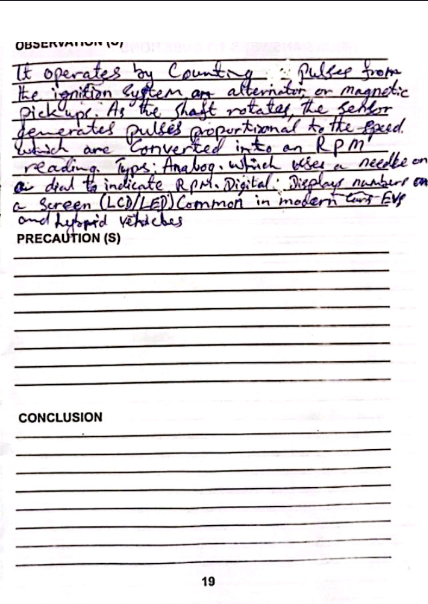 OBSERVATION (S)
It operates by Counting Pulses from
the ignition System an alternator, or magnetic
pickups. As the shaft rotates, the sensor
generates pulses proportional to the speed.
which are Converted into an RPM
reading. Types: Analog. which uses a needle on
a dial to indicate RPM. Digital: Displays numbers on
a Screen (LCD/LED) Common in modern cars EVs
and hybrid vehicles
PRECAUTION (S)
CONCLUSION
19